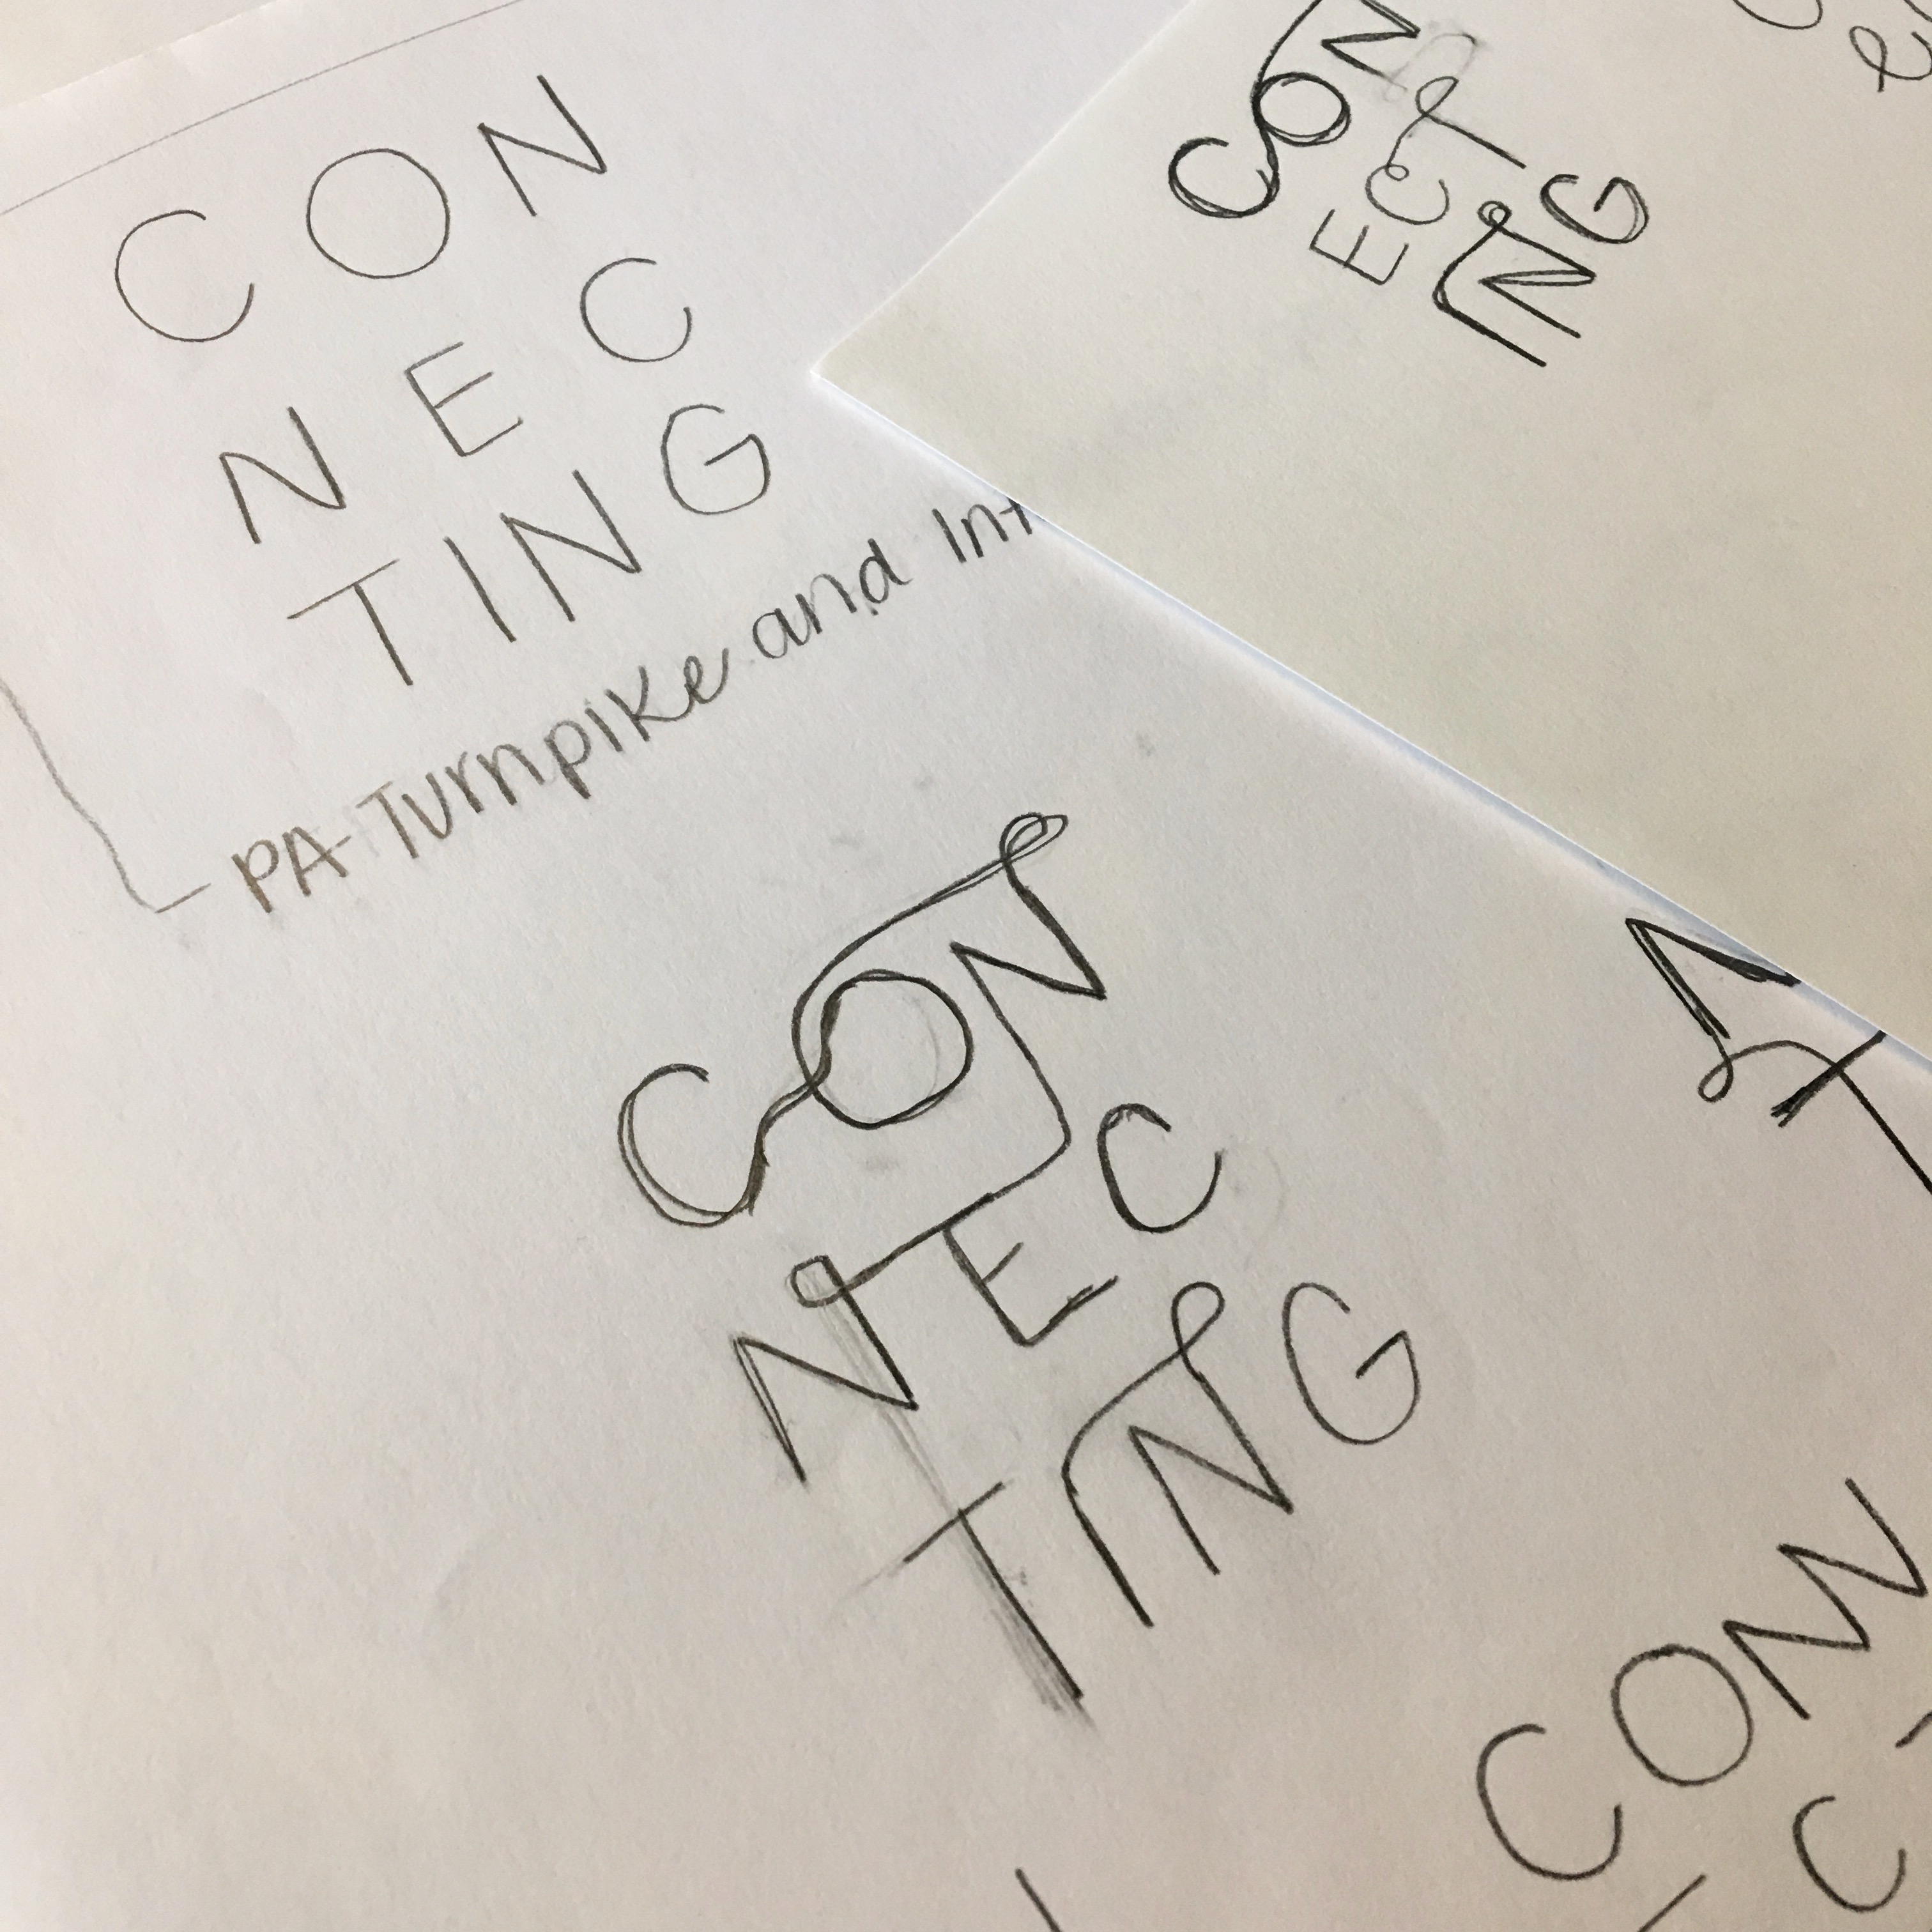 CON
NEC
TING
PA Turnpike and Int
CON
ECT
NG
CON
NEC
TING
CON
C